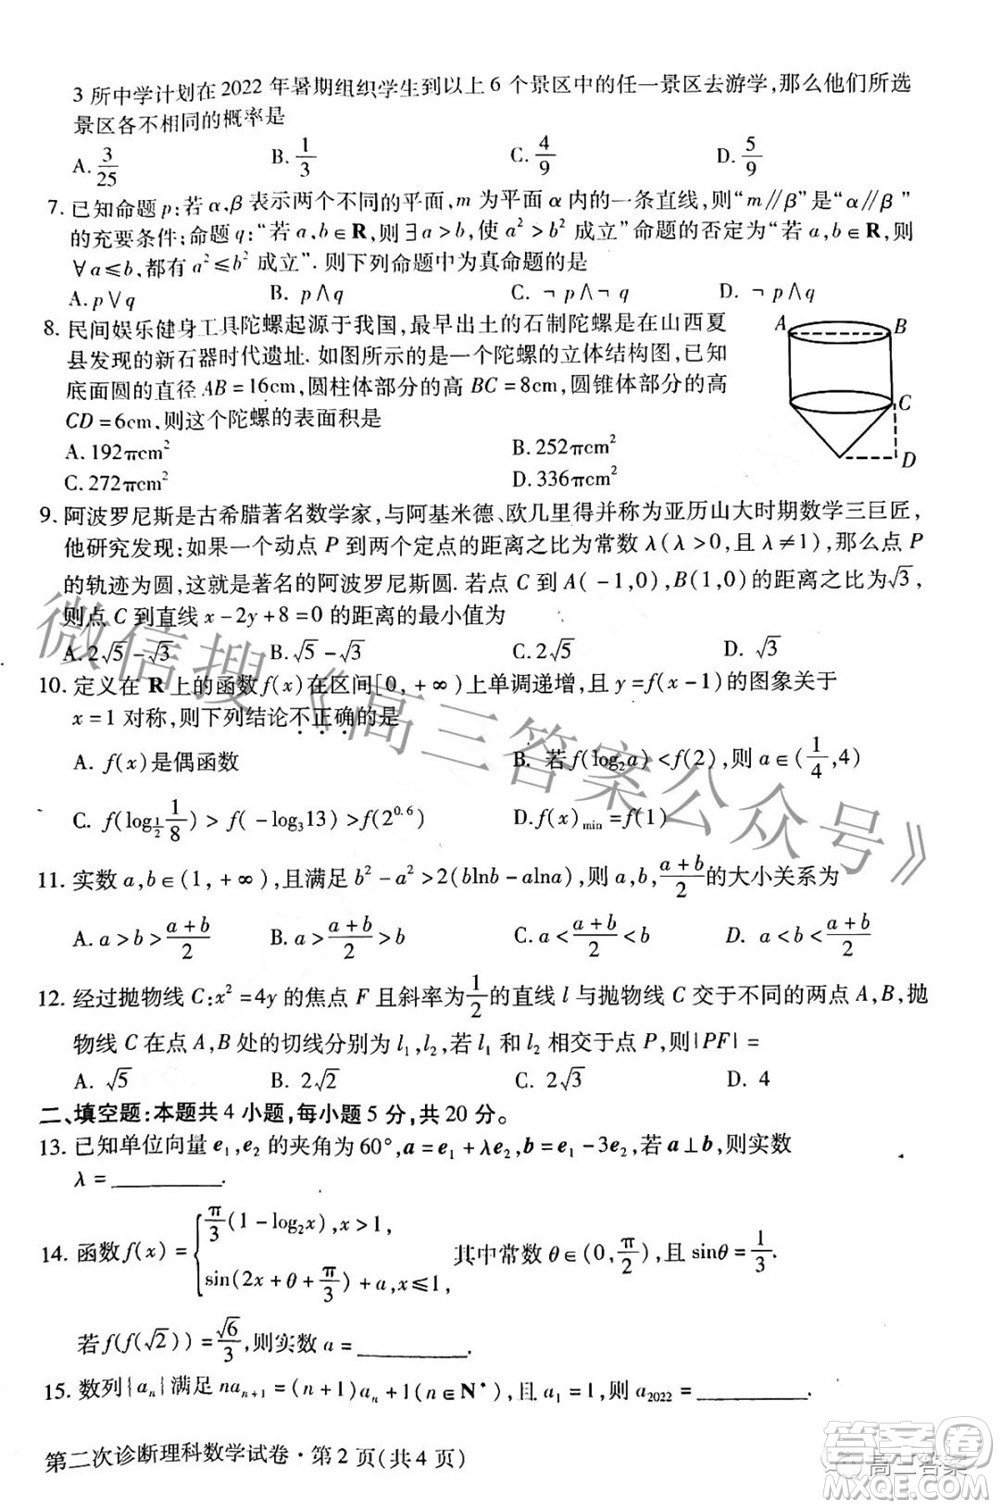 3 所中学计划在 2022 年暑期组织学生到以上 6 个景区中的任一景区去游学,那么他们所选
景区各不相同的概率是
A. 3/25 B. 1/3 C. 4/9 D. 5/9
7. 已知命题 p:若 α,β 表示两个不同的平面,m 为平面 α 内的一条直线,则“m∥β”是“α∥β”
的充要条件;命题 q:“若 a,b∈R,则∃a>b,使 a²>b² 成立”命题的否定为“若 a,b∈R,
∀a≤b,都有 a²≤b² 成立”. 则下列命题中为真命题的是
A. p∨q B. p∧q C. ¬p∧¬q D. ¬p∧q
8. 民间娱乐健身工具陀螺起源于我国,最早出土的石制陀螺是在山西夏
县发现的新石器时代遗址. 如图所示的是一个陀螺的立体结构图,已知
底面圆的直径 AB=16cm,圆柱体部分的高 BC=8cm,圆锥体部分的高
CD=6cm,则这个陀螺的表面积是
A B
C
D
A. 192πcm² B. 252πcm²
C. 272πcm² D. 336πcm²
9. 阿波罗尼斯是古希腊著名数学家,与阿基米德、欧几里得并称为亚历山大时期数学三巨匠,
他研究发现:如果一个动点 P 到两个定点的距离之比为常数 λ(λ>0,且 λ≠1),那么点 P
的轨迹为圆,这就是著名的阿波罗尼斯圆. 若点 C 到 A(-1,0),B(1,0)的距离之比为√3,
则点 C 到直线 x-2y+8=0 的距离的最小值为
A. 2√5-√3 B. √5-√3 C. 2√5 D. √3
10. 定义在 R 上的函数 f(x)在区间[0,+∞)上单调递增,且 y=f(x-1)的图象关于
x=1 对称,则下列结论不正确的是
A. f(x)是偶函数 B. 若 f(log₂a)<f(2),则 a∈(1/4,4)
C. f(log_{1/2} 1/8)>f(-log₃13)>f(2^{0.6}) D. f(x)_{min}=f(1)
11. 实数 a,b∈(1,+∞),且满足 b²-a²>2(blnb-alna),则 a,b,(a+b)/2 的大小关系为
A. a>b>(a+b)/2 B. a>(a+b)/2>b C. a<(a+b)/2<b D. a<b<(a+b)/2
12. 经过抛物线 C:x²=4y 的焦点 F 且斜率为 1/2 的直线 l 与抛物线 C 交于不同的两点 A,B,抛
物线 C 在点 A,B 处的切线分别为 l₁,l₂,若 l₁ 和 l₂ 相交于点 P,则|PF|=
A. √5 B. 2√2 C. 2√3 D. 4
二、填空题:本题共 4 小题,每小题 5 分,共 20 分。
13. 已知单位向量 e₁,e₂ 的夹角为 60°,a=e₁+λe₂,b=e₁-3e₂,若 a⊥b,则实数
λ=________.
14. 函数 f(x)={π/3(1-log₂x),x>1, sin(2x+θ+π/3)+a,x≤1, 其中常数 θ∈(0,π/2),且 sinθ=1/3.
若 f(f(√2))=√6/3,则实数 a=________.
15. 数列{aₙ}满足 naₙ₊₁=(n+1)aₙ+1(n∈N*),且 a₁=1,则 a₂₀₂₂=________.
第二次诊断理科数学试卷·第 2 页(共 4 页)
微信搜《高三答案公众号》
答案圈
高三答案
MXQE.COM